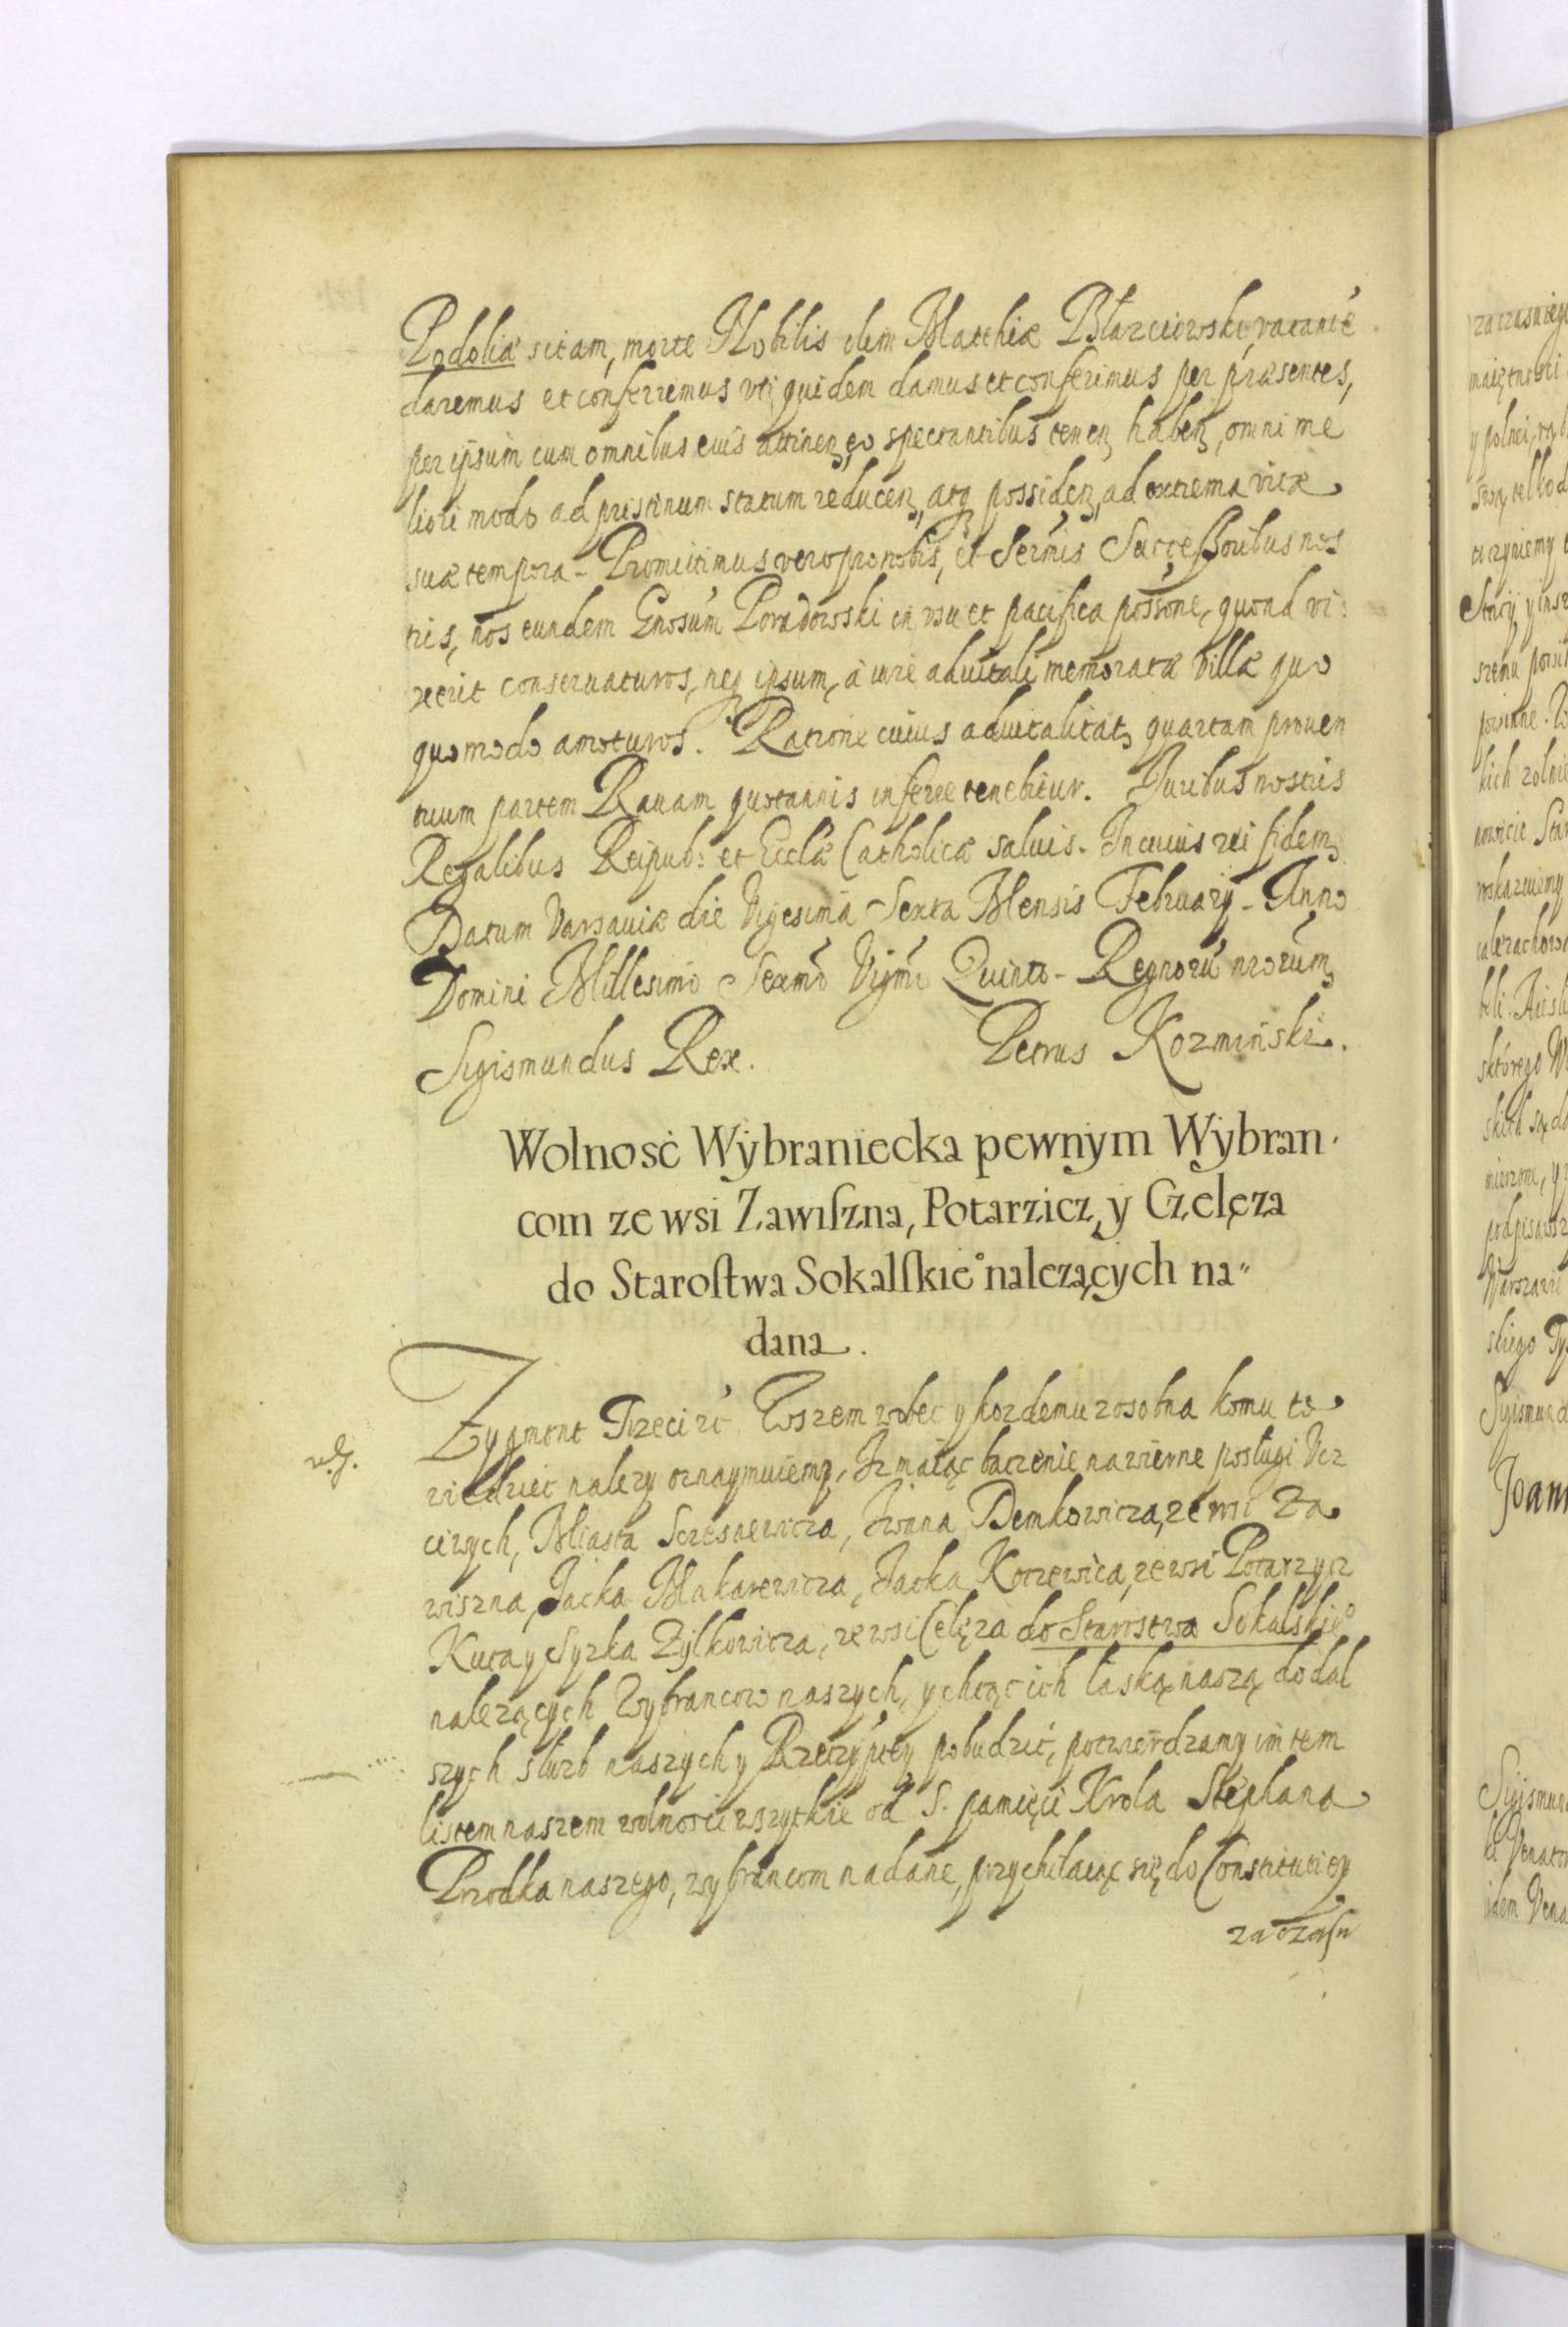 Podoliæ sitam, morte Nobilis olim Matthiæ Błazeiowski, vacante
daremus et conferremus vti quidem damus et conferimus per præsentes,
per ipsum cum omnibus euis attinen, eo spectantibus tenen, haben, omni me
liori modo ad pristinum statum reducen, atq possiden, ad extrema vitæ
suæ tempora - Promittimus vero pro nobis, et Sermis Successoribus nos
tris, nos eundem Gnosum Poradowski in vsu et pacifica possione, quoad vi:
xerit conseruaturos, neq ipsum, á iure aduitali memoratæ Villæ quo
quomodo amoturos. Ratione cuius aduitalitat, quartam prouen
tuum partem Rauam quotannis inferre tenebitur. Juribus nostris
Regalibus Reipub: et Ecclæ Catholicæ saluis. In cuius rei fidem
Datum Varsauiæ die Vigesima Sexta Mensis February - Anno
Domini Millesimo Sexmo Vigmo Quinto - Regnorũ nrorum,
Sigismundus Rex. Petrus Kozminski.
Wolnosć Wybraniecka pewnym Wybran-
com ze wsi Zawiſzna, Potarzicz, y Czelęza
do Staroſtwa Sokalſkie° nalezących na"
dana.
Zygmont Trzeci etc Wszem wobec y kozdemu zosobna komu to
wiedziec nalezy oznaymuiemy, Iz maiąc baczenie na wierne posługi Vcz
ciwych, Miasta Sczesnewicza, Iwana Demkowicza, ze wsi Za
wiszna, Jacka Makarewicza, Jacka Koczewica, ze wsi Potarzycz
Kuca y Syzka Zylkowicza, ze wsi Celęza do Starostwa Sokalskie°
nalezących Wybrancow naszych, y chcąc ich łaską naszą do dal
szych słuzb naszych y Rzeczyptey pobudzić, potwierdzamy im tem
listem naszem wolnosci wszytkie od S. pamięci Krola Stephana
Przodka naszego, wybrancom nadane, przychilaiąc się do Constitutiey
za czaſu